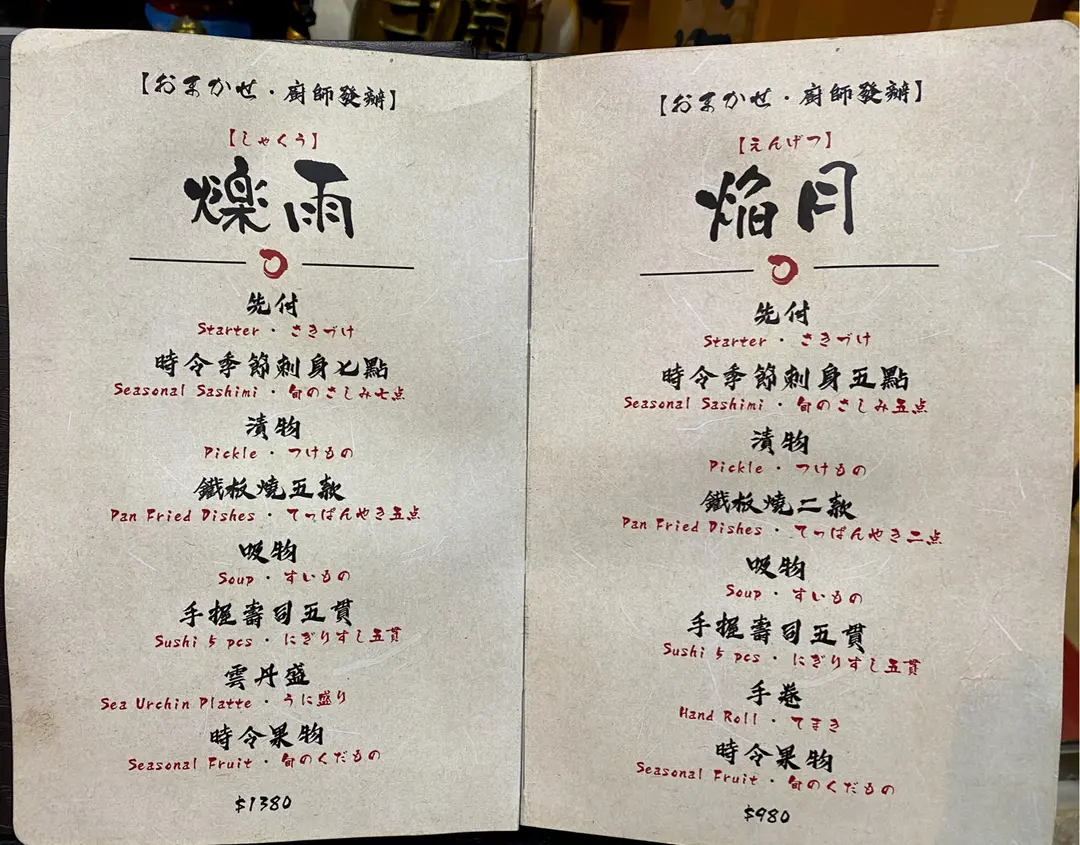 【おまかせ・廚師發辦】
【しゃくう】
爍雨
先付
Starter・さきづけ
時令季節刺身七點
Seasonal Sashimi・旬のさしみ七点
漬物
Pickle・つけもの
鐵板燒五款
Pan Fried Dishes・てっぱんやき五点
吸物
Soup・すいもの
手握壽司五貫
Sushi 5 pcs・にぎりすし五貫
雲丹盛
Sea Urchin Platte・うに盛り
時令果物
Seasonal Fruit・旬のくだもの
$1380
【おまかせ・廚師發辦】
【えんげつ】
焔月
先付
Starter・さきづけ
時令季節刺身五點
Seasonal Sashimi・旬のさしみ五点
漬物
Pickle・つけもの
鐵板燒二款
Pan Fried Dishes・てっぱんやき二点
吸物
Soup・すいもの
手握壽司五貫
Sushi 5 pcs・にぎりすし五貫
手卷
Hand Roll・てまき
時令果物
Seasonal Fruit・旬のくだもの
$980